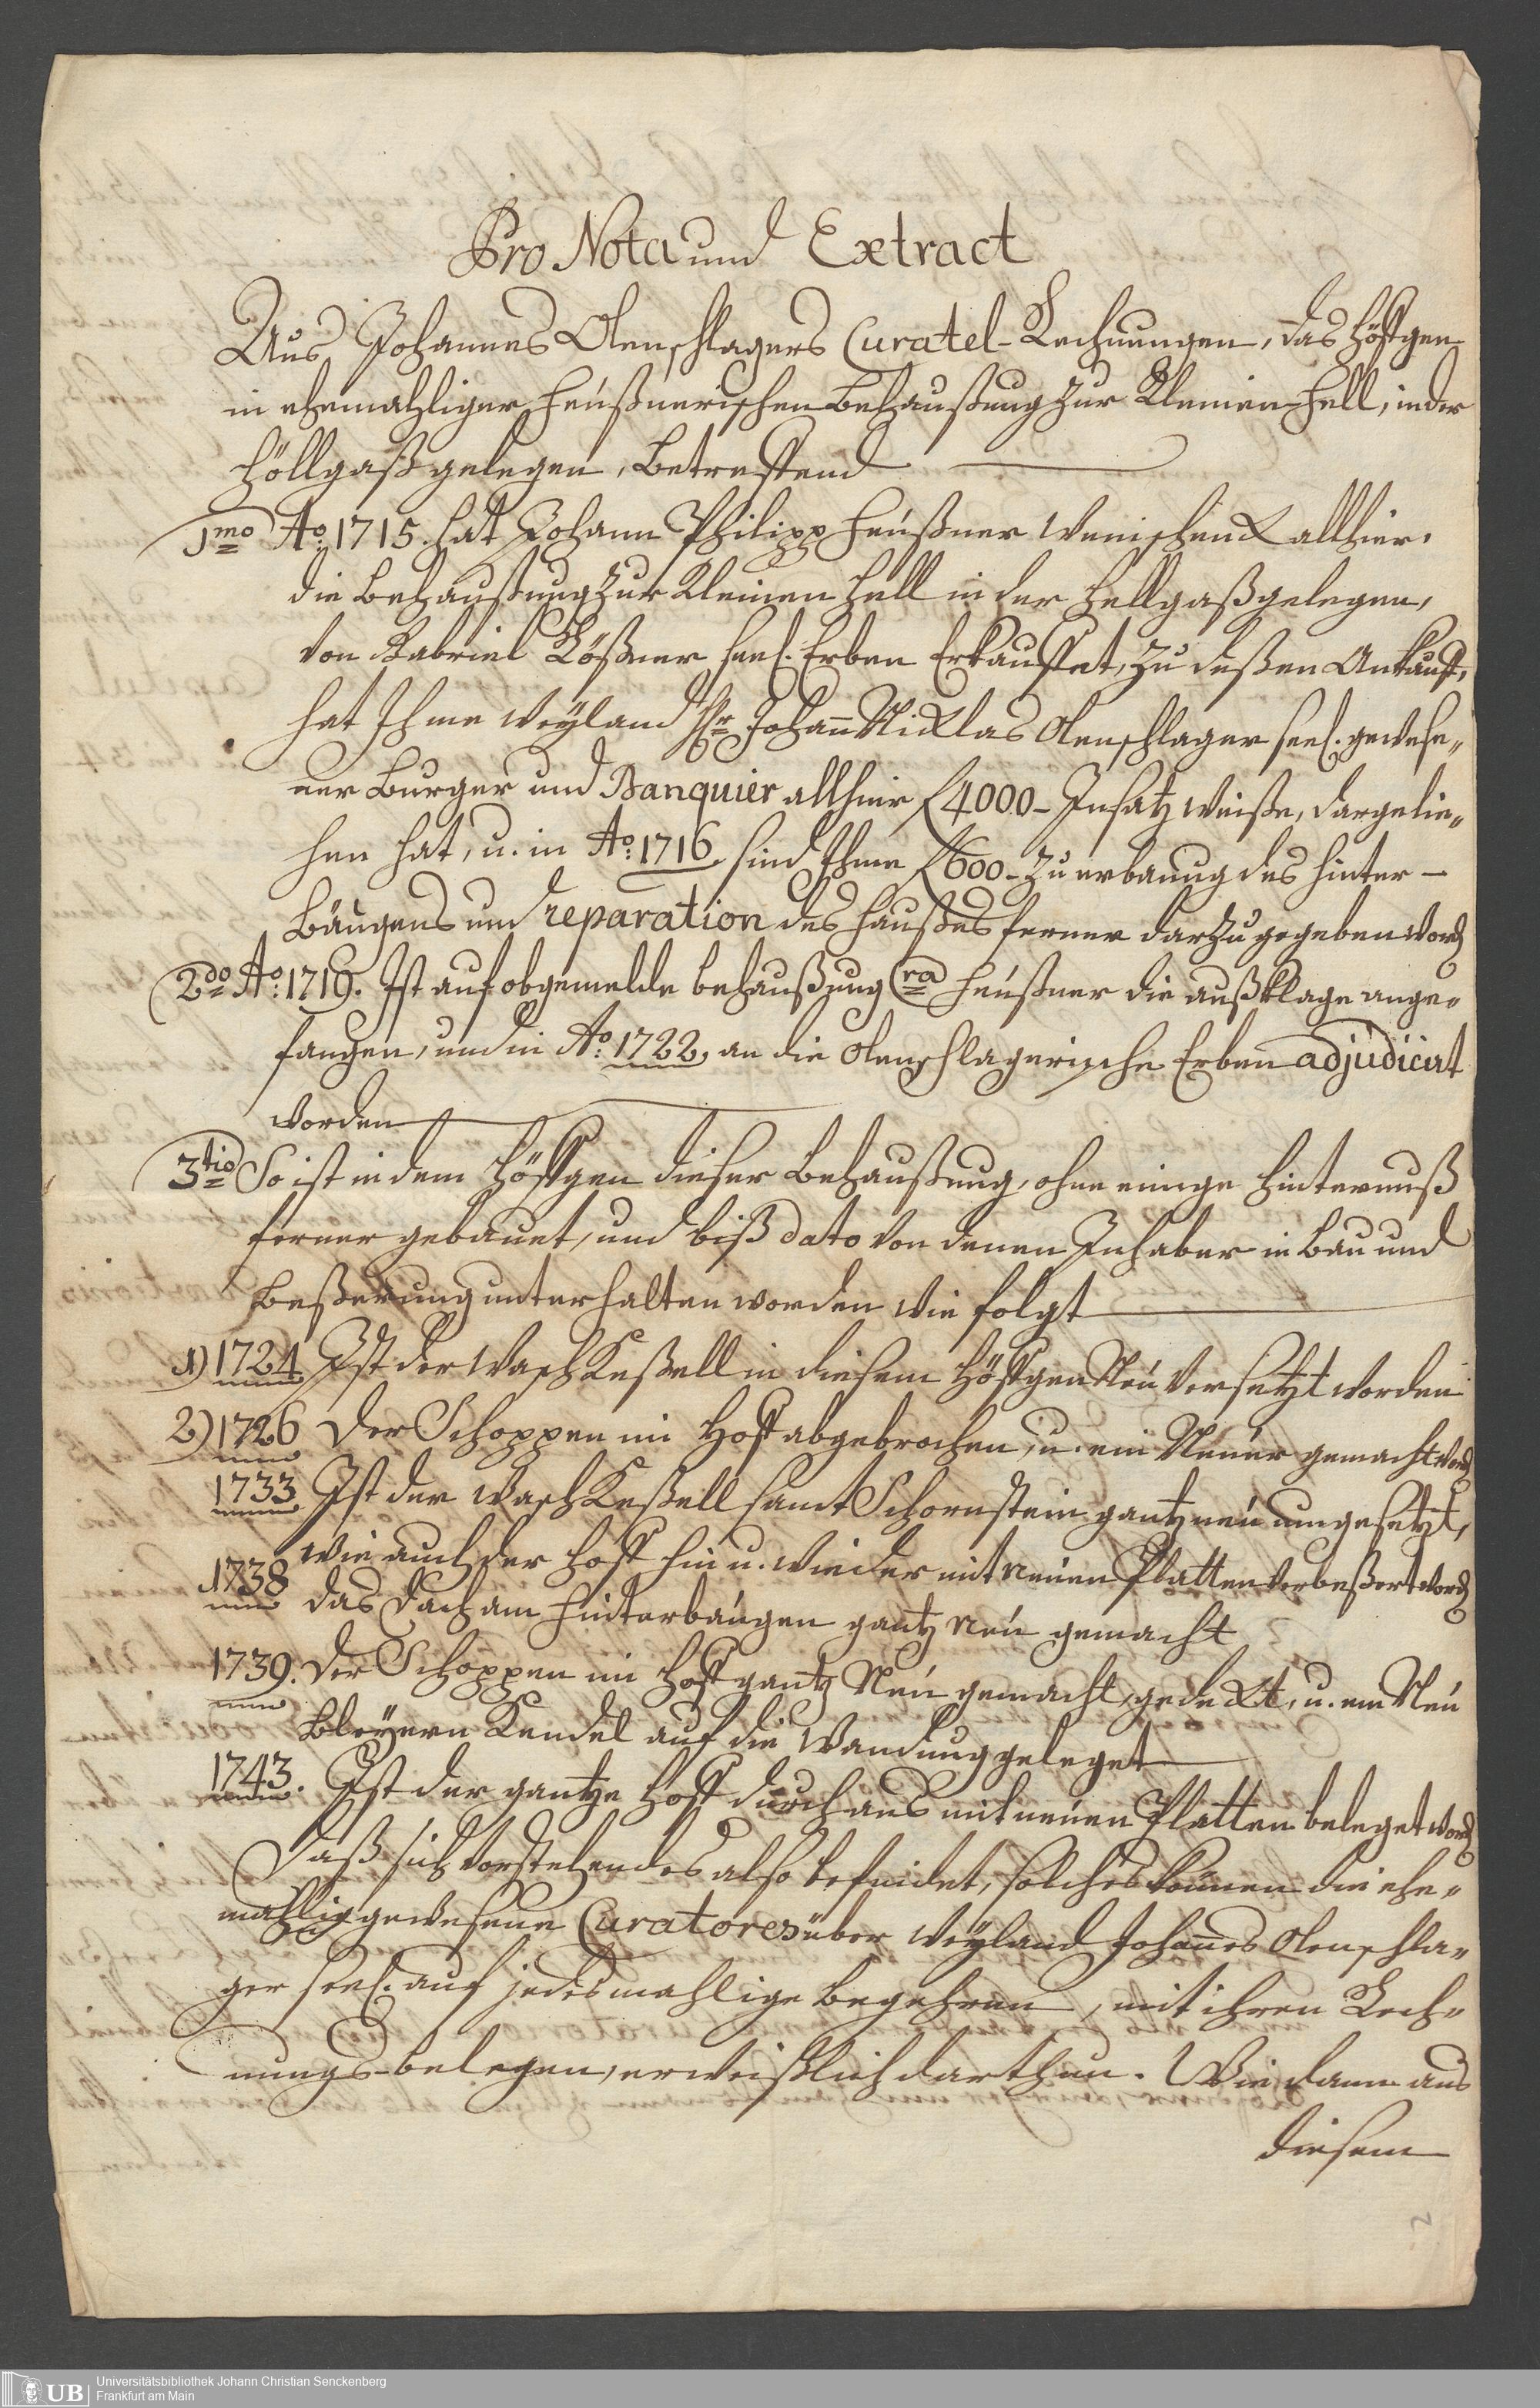 Pro Nota und Extract
Aus Johannes Olenschlagers Curatel-Rechnungen, das Höffgen
in ehemahliger Heußnerischen Behaußung zur Kleinen Hell, in der
Höllgaß gelegen, Betreffend
1mo Ao: 1715. hat Johann Philipp Heußner Weinschenck allhier,
die Behaußung zur Kleinen Hell in der Hellgaß gelegen,
von Gabriel Rößner seel. Erben Erkauffet, zu deßen Ankauff,
hat Ihme weyland Hr Johann Nicklas Olenschlager seel. gewese„
ner Burger und Banquier allhier f 4000 - Insatz weiße, dargelie„
hen hat, u. in Ao: 1716. sind Ihme f 600 - zu erbauung des Hinter-
Bäugens und reparation des Haußes ferner darzu gegeben word
2do Ao: 1719. Ist auf obgemelde behaußung Cra Heußner die außklage ange„
fangen, und in Ao: 1722. an die Olenschlagerische Erben adjudicirt
worden
3tio So ist in dem Höffgen dieser Behaußung, ohne einige Hinternuß
ferner gebauet, und biß dato von denen Inhaber in Bau und
Beßerung unterhalten worden wie folgt
1) 1724 Ist der Wasch Keßell in diesem Höffgen Neu versetzt worden
2) 1726 Der Schoppen im Hoff abgebrochen, u. ein Neuer gemacht word
1733 Ist der Wasch Keßell samt Schornstein gantz neu umgesetzt,
wie auch der Hoff hin u. wieder mit neuen Platten verbeßert word
1738 das Dach am Hinterbäugen gantz neu gemacht
1739. Der Schoppen im Hoff gantz Neu gemacht, gedeckt, u. ein Neu
Bleyern Kendel auf die Wandung geleget
1743. Ist der gantze Hoff durchaus mit neuen Platten beleget word
Daß sich vorstehendes also befindet, solches können die ehe„
mahlig gewesene Curatores über weyland Johannes Olenschla„
ger seel. auf jedesmahlige begehren, mit ihren Rech„
nungs-belegen, erweißlich darthun. Wie dann aus
diesem
2
UB Universitätsbibliothek Johann Christian Senckenberg
Frankfurt am Main